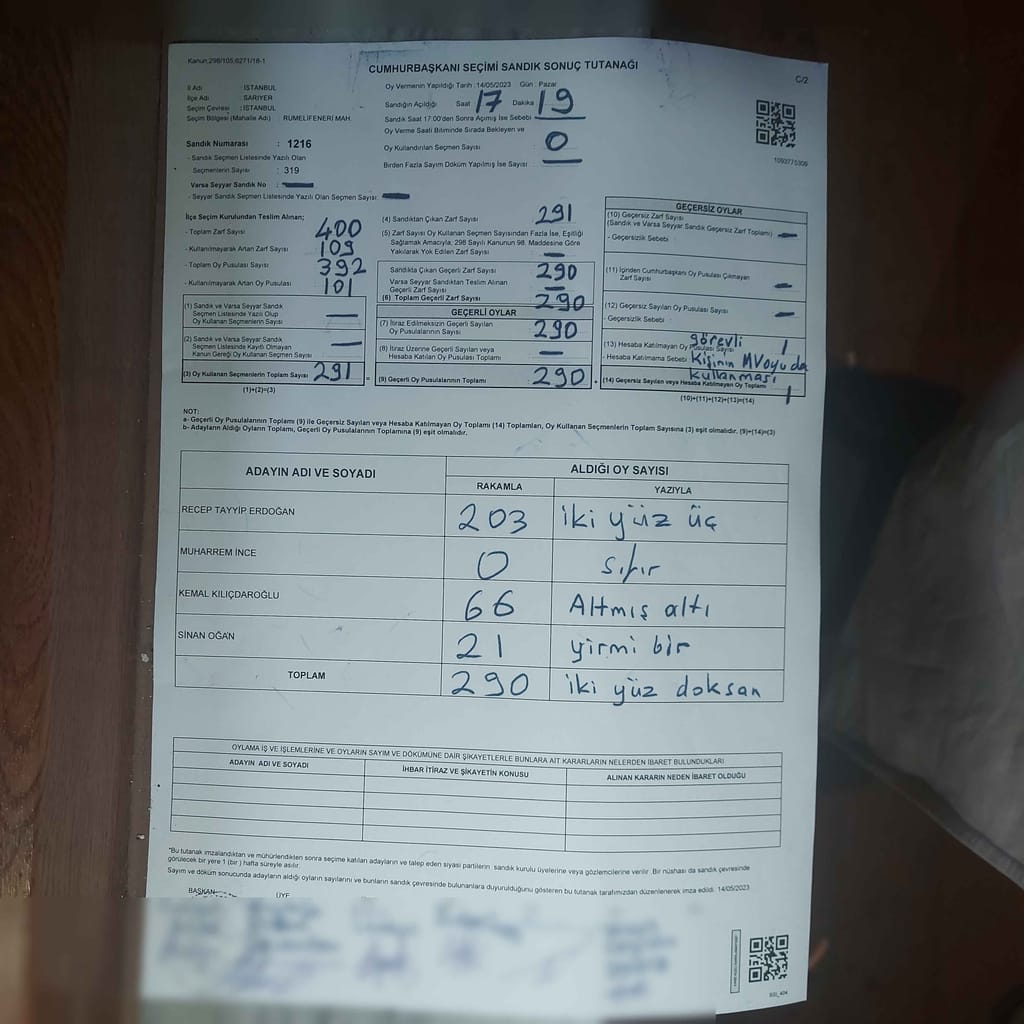 Kanun:298/105;6271/18-1
CUMHURBAŞKANI SEÇİMİ SANDIK SONUÇ TUTANAĞI
C/2
İl Adı : İSTANBUL
İlçe Adı : SARIYER
Seçim Çevresi : İSTANBUL
Seçim Bölgesi (Mahalle Adı) RUMELİFENERİ MAH.
Sandık Numarası : 1216
- Sandık Seçmen Listesinde Yazılı Olan
Seçmenlerin Sayısı : 319
Varsa Seyyar Sandık No : —
- Seyyar Sandık Seçmen Listesinde Yazılı Olan Seçmen Sayısı: —
Oy Vermenin Yapıldığı Tarih :14/05/2023 Gün : Pazar
Sandığın Açıldığı Saat 17 Dakika 19
Sandık Saat 17:00'den Sonra Açılmış İse Sebebi —
Oy Verme Saati Bitiminde Sırada Bekleyen ve
Oy Kullandırılan Seçmen Sayısı 0
Birden Fazla Sayım Döküm Yapılmış İse Sayısı —
1093775309
İlçe Seçim Kurulundan Teslim Alınan;
- Toplam Zarf Sayısı 400
- Kullanılmayarak Artan Zarf Sayısı 109
- Toplam Oy Pusulası Sayısı 392
- Kullanılmayarak Artan Oy Pusulası 101
(1) Sandık ve Varsa Seyyar Sandık
Seçmen Listesinde Yazılı Olup
Oy Kullanan Seçmenlerin Sayısı —
(2) Sandık ve Varsa Seyyar Sandık
Seçmen Listesinde Kayıtlı Olmayan
Kanun Gereği Oy Kullanan Seçmen Sayısı —
(3) Oy Kullanan Seçmenlerin Toplam Sayısı 291 =
(1)+(2)=(3)
(4) Sandıktan Çıkan Zarf Sayısı 291
(5) Zarf Sayısı Oy Kullanan Seçmen Sayısından Fazla İse, Eşitliği
Sağlamak Amacıyla; 298 Sayılı Kanunun 98. Maddesine Göre
Yakılarak Yok Edilen Zarf Sayısı —
Sandıkta Çıkan Geçerli Zarf Sayısı 290
Varsa Seyyar Sandıktan Teslim Alınan
Geçerli Zarf Sayısı —
(6) Toplam Geçerli Zarf Sayısı 290
GEÇERLİ OYLAR
(7) İtiraz Edilmeksizin Geçerli Sayılan
Oy Pusulalarının Sayısı 290
(8) İtiraz Üzerine Geçerli Sayılan veya
Hesaba Katılan Oy Pusulası Toplamı —
(9) Geçerli Oy Pusulalarının Toplamı 290 +
GEÇERSİZ OYLAR
(10) Geçersiz Zarf Sayısı
(Sandık ve Varsa Seyyar Sandık Geçersiz Zarf Toplamı) —
- Geçersizlik Sebebi
(11) İçinden Cumhurbaşkanı Oy Pusulası Çıkmayan
Zarf Sayısı —
(12) Geçersiz Sayılan Oy Pusulası Sayısı —
- Geçersizlik Sebebi
(13) Hesaba Katılmayan Oy Pusulası Sayısı 1
- Hesaba Katılmama Sebebi görevli
Kişinin MVoyu da
kullanması
(14) Geçersiz Sayılan veya Hesaba Katılmayan Oy Toplamı 1
(10)+(11)+(12)+(13)=(14)
NOT:
a- Geçerli Oy Pusulalarının Toplamı (9) ile Geçersiz Sayılan veya Hesaba Katılmayan Oy Toplamı (14) Toplamları, Oy Kullanan Seçmenlerin Toplam Sayısına (3) eşit olmalıdır. (9)+(14)=(3)
b- Adayların Aldığı Oyların Toplamı, Geçerli Oy Pusulalarının Toplamına (9) eşit olmalıdır.
ADAYIN ADI VE SOYADI ALDIĞI OY SAYISI
RAKAMLA YAZIYLA
RECEP TAYYİP ERDOĞAN 203 iki yüz üç
MUHARREM İNCE 0 sıfır
KEMAL KILIÇDAROĞLU 66 Altmış altı
SİNAN OĞAN 21 yirmi bir
TOPLAM 290 iki yüz doksan
OYLAMA İŞ VE İŞLEMLERİNE VE OYLARIN SAYIM VE DÖKÜMÜNE DAİR ŞİKAYETLERLE BUNLARA AİT KARARLARIN NELERDEN İBARET BULUNDUKLARI
ADAYIN ADI VE SOYADI İHBAR İTİRAZ VE ŞİKAYETİN KONUSU ALINAN KARARIN NEDEN İBARET OLDUĞU
*Bu tutanak imzalandıktan ve mühürlendikten sonra seçime katılan adayların ve talep eden siyasi partilerin sandık kurulu üyelerine veya gözlemcilerine verilir. Bir nüshası da sandık çevresinde
görülecek bir yere 1 (bir ) hafta süreyle asılır.
Sayım ve döküm sonucunda adayların aldığı oyların sayılarını ve bunların sandık çevresinde bulunanlara duyurulduğunu gösteren bu tutanak tarafımızdan düzenlenerek imza edildi. 14/05/2023
BAŞKAN ÜYE